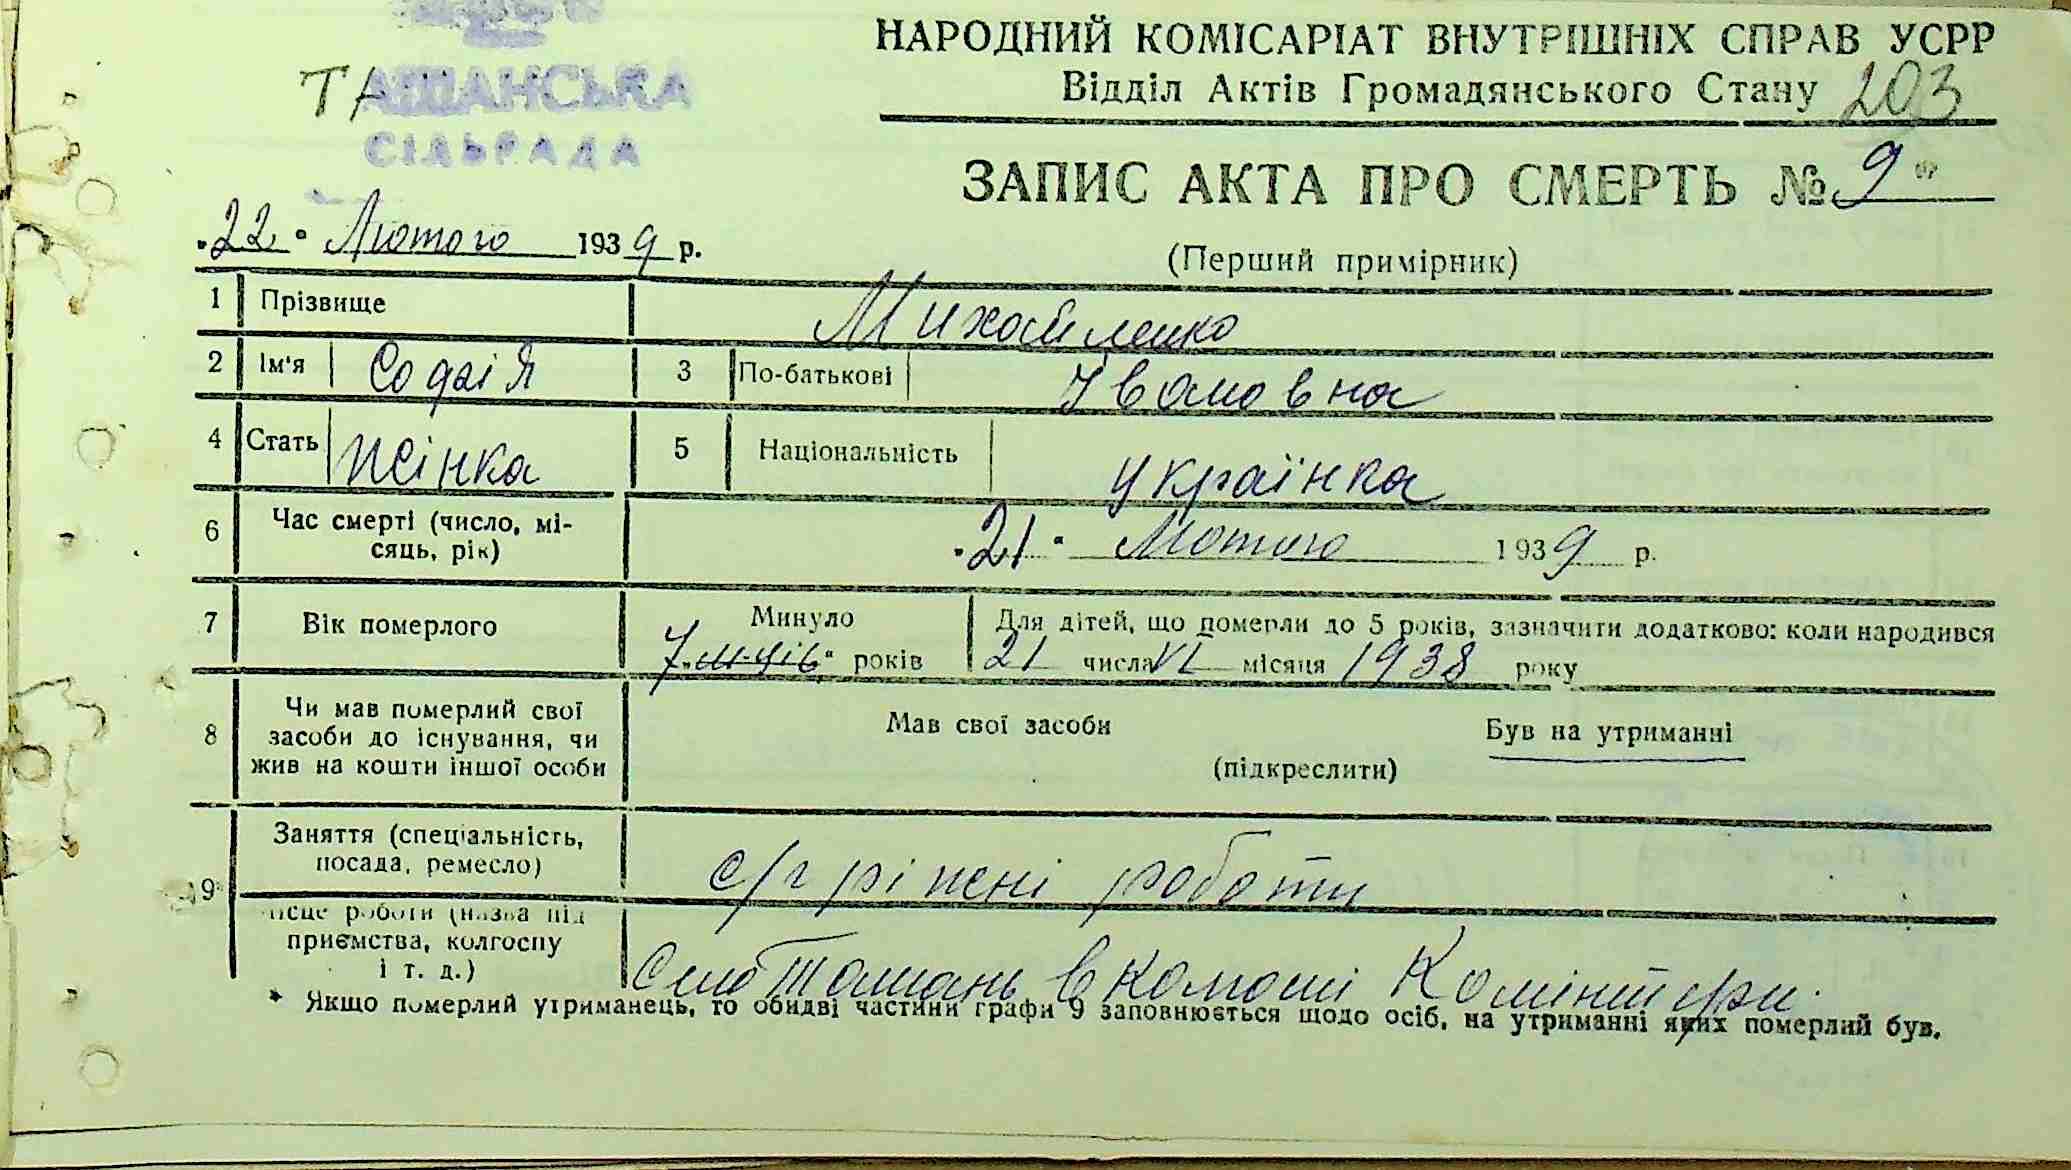 НАРОДНИЙ КОМІСАРІАТ ВНУТРІШНІХ СПРАВ УСРР
Відділ Актів Громадянського Стану 203
ТАШАНСЬКА
СІЛЬРАДА
ЗАПИС АКТА ПРО СМЕРТЬ № 9
"22" Лютого 1939 р.
(Перший примірник)
1 Прізвище Михайленко
2 Ім'я Софія 3 По-батькові Івановна
4 Стать жінка 5 Національність українка
6 Час смерті (число, мі-
сяць, рік) "21" Лютого 1939 р.
7 Вік померлого Минуло 7 м-ців років
Для дітей, що померли до 5 років, зазначити додатково: коли народився
21 числа VI місяця 1938 року
8 Чи мав померлий свої
засоби до існування, чи
жив на кошти іншої особи
Мав свої засоби Був на утриманні
(підкреслити)
9 Заняття (спеціальність,
посада, ремесло) с/г ріжні роботи
місце роботи (назва під
приємства, колгоспу
і т. д.) Село Ташань в колгоспі Комінтерн.
* Якщо померлий утриманець, то обидві частини графи 9 заповнюється щодо осіб, на утриманні яких померлий був.